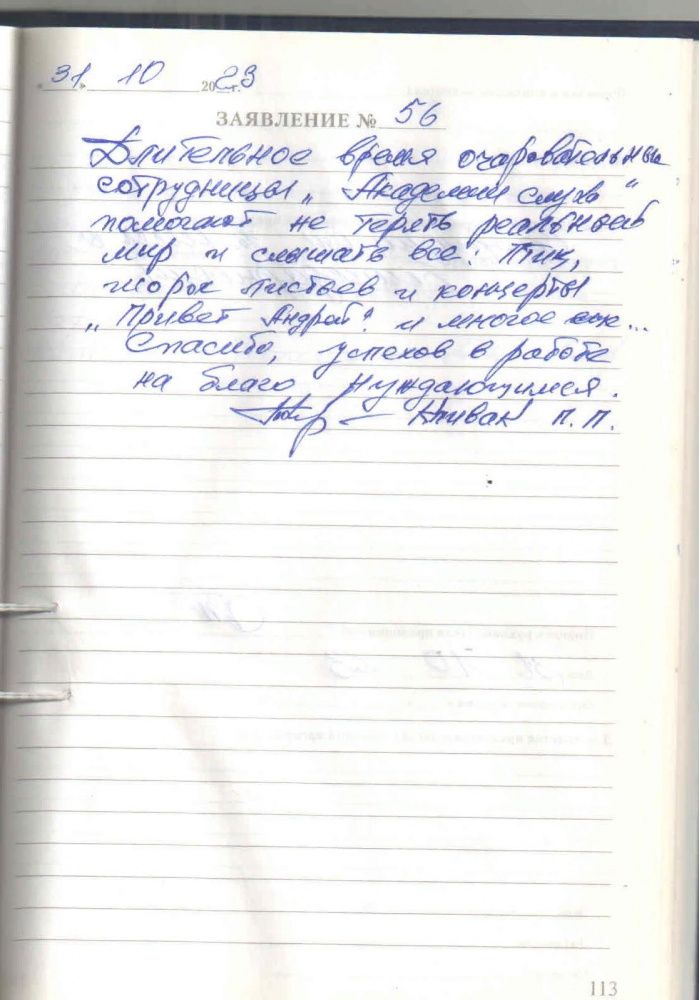 «31» 10 2023 г.
ЗАЯВЛЕНИЕ № 56
Длительное время очаровательные
сотрудницы „Академии слуха"
помогают не терять реальный
мир и слышать все: птиц,
шорох листьев и концерты
„Привет Андрей"! и многое
Спасибо, успехов в работе
на благо нуждающимся.
П.П.
113